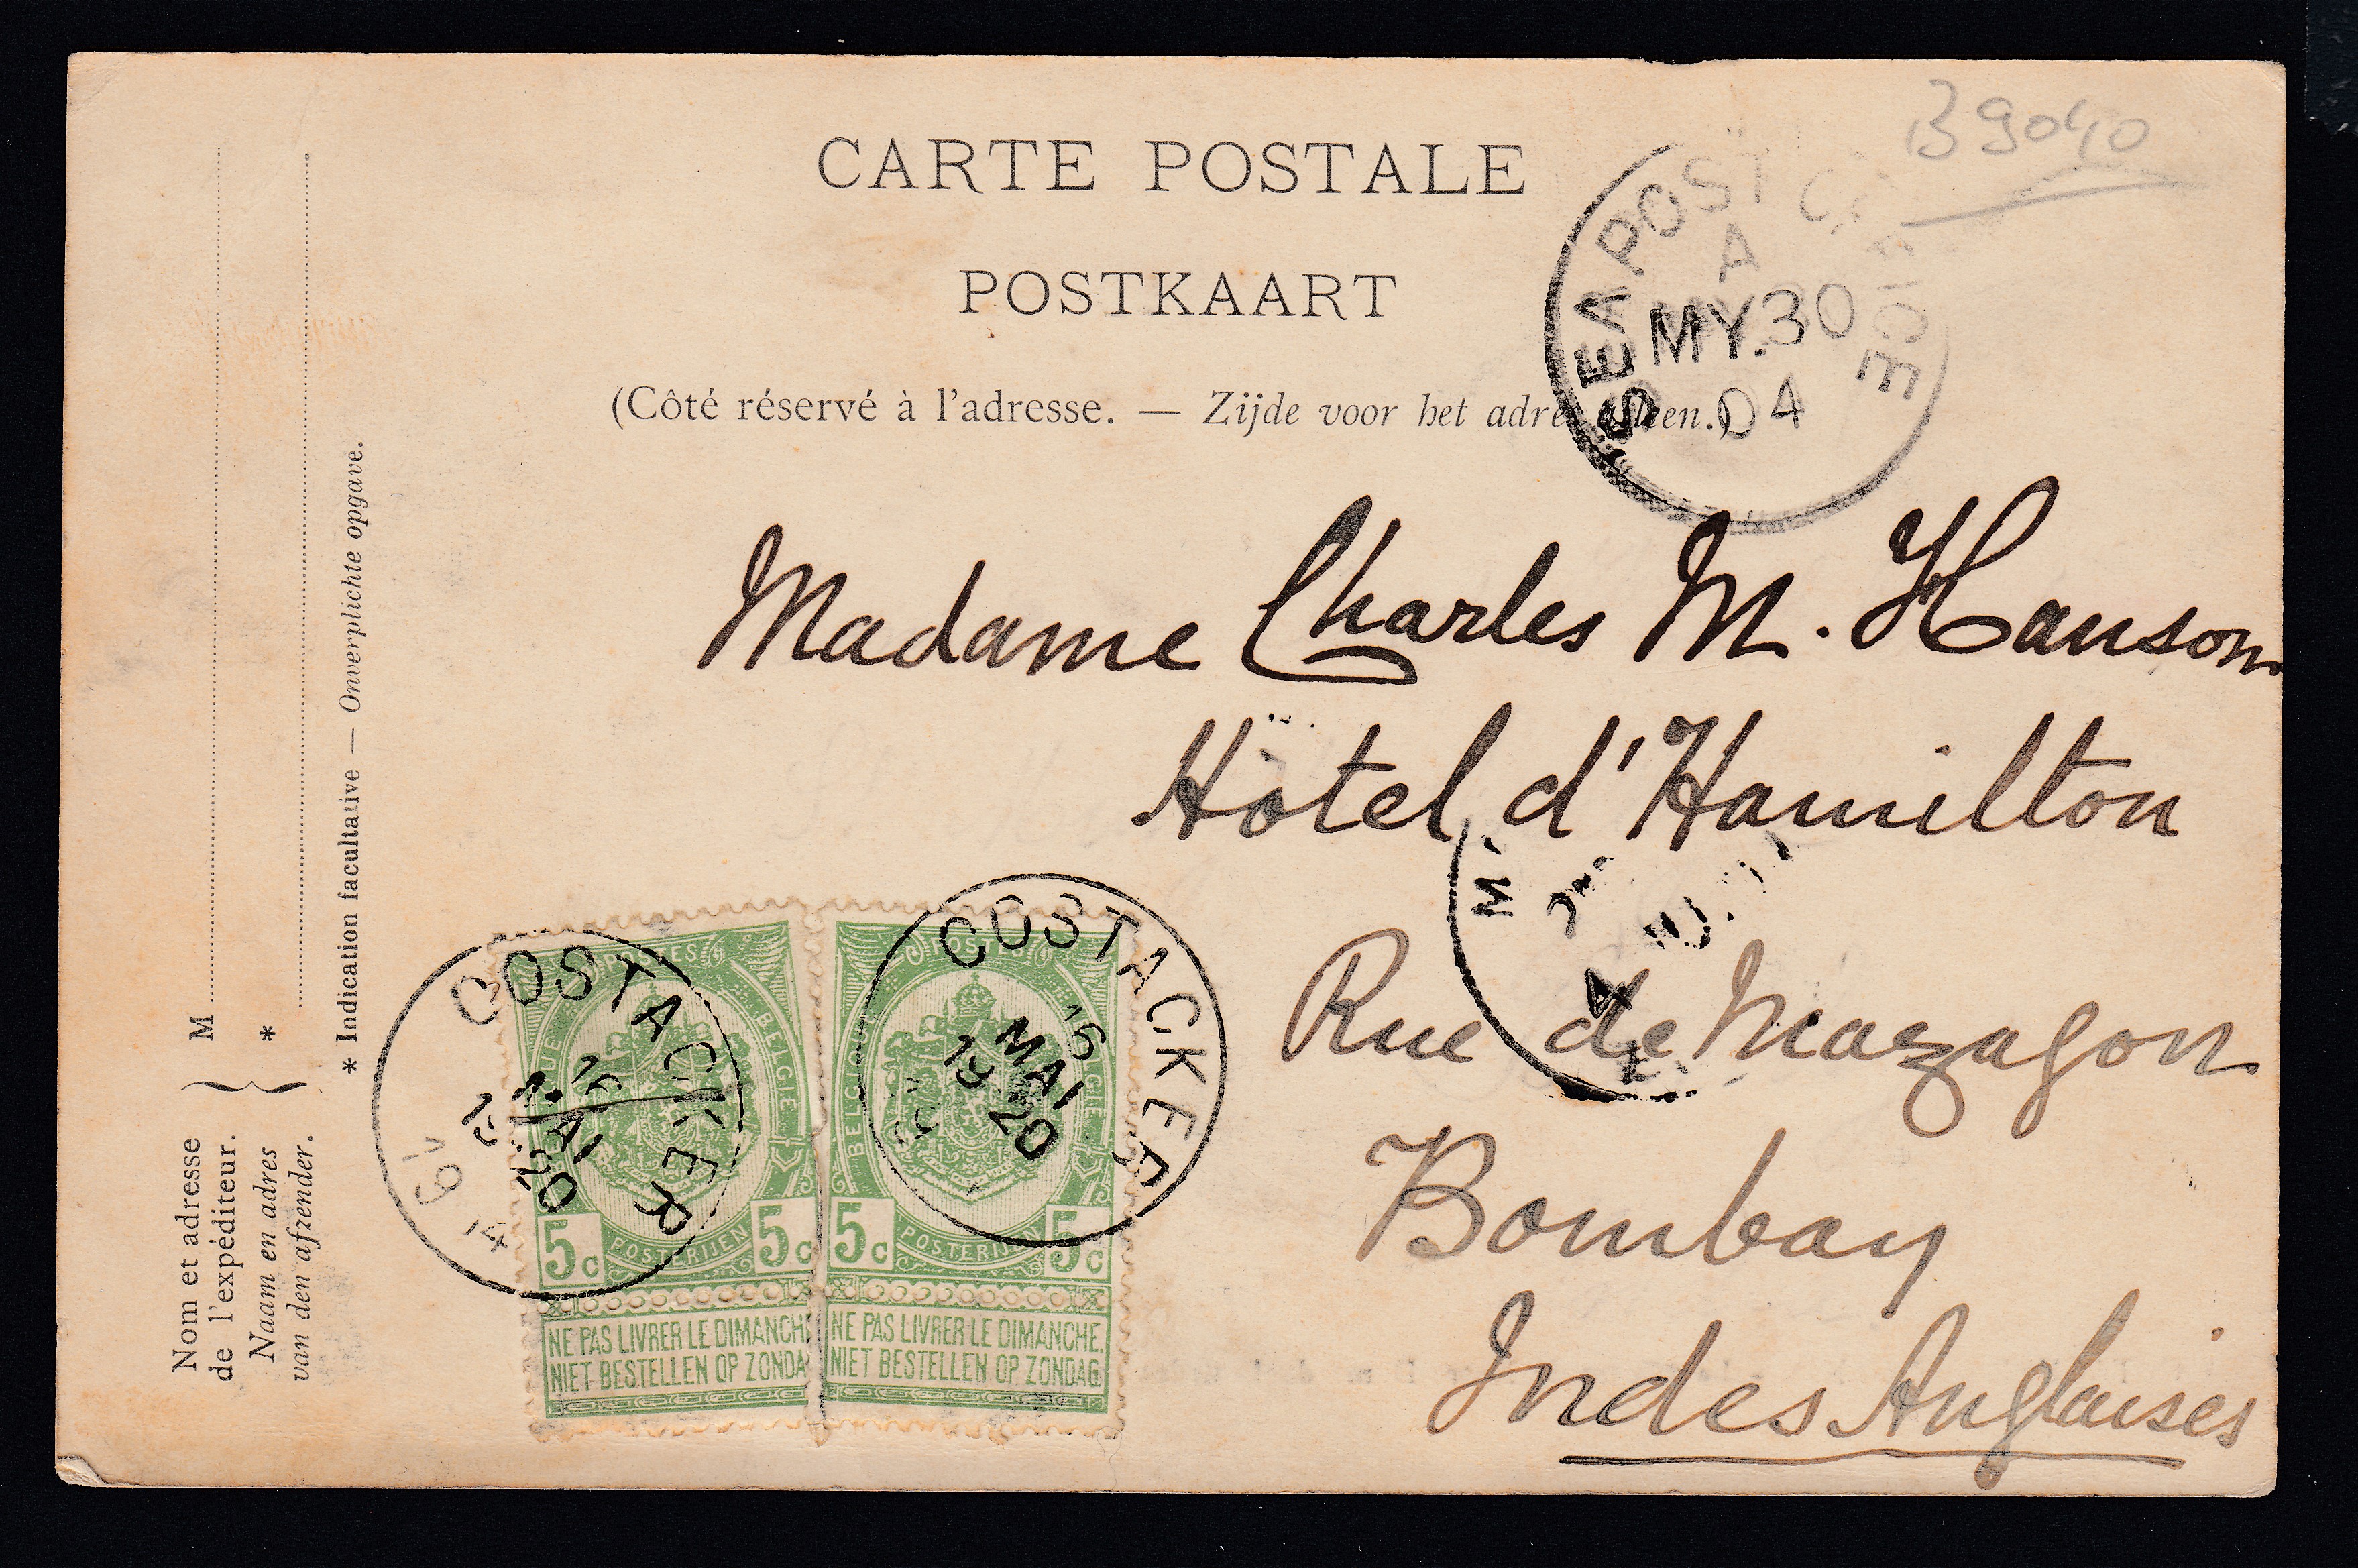 B9040
CARTE POSTALE
POSTKAART
(Côté réservé à l'adresse. — Zijde voor het adres alleen.)
SEA POST OFFICE
A
MY.30
04
Madame Charles M. Hanson
Hôtel d'Hamilton
Rue de Mazagon
Bombay
Indes Anglaises
M
*
Nom et adresse
de l'expéditeur.
Naam en adres
van den afzender.
* Indication facultative — Onverplichte opgave.
COSTACKER
16
MAI
COSTACKER
16
MAI
19 20
POSTES
BELGIQUE
BELGIE
5c 5c
POSTERIJEN
NE PAS LIVRER LE DIMANCHE
NIET BESTELLEN OP ZONDA
POSTES
5c 5c
POSTERIJEN
NE PAS LIVRER LE DIMANCHE.
NIET BESTELLEN OP ZONDAG